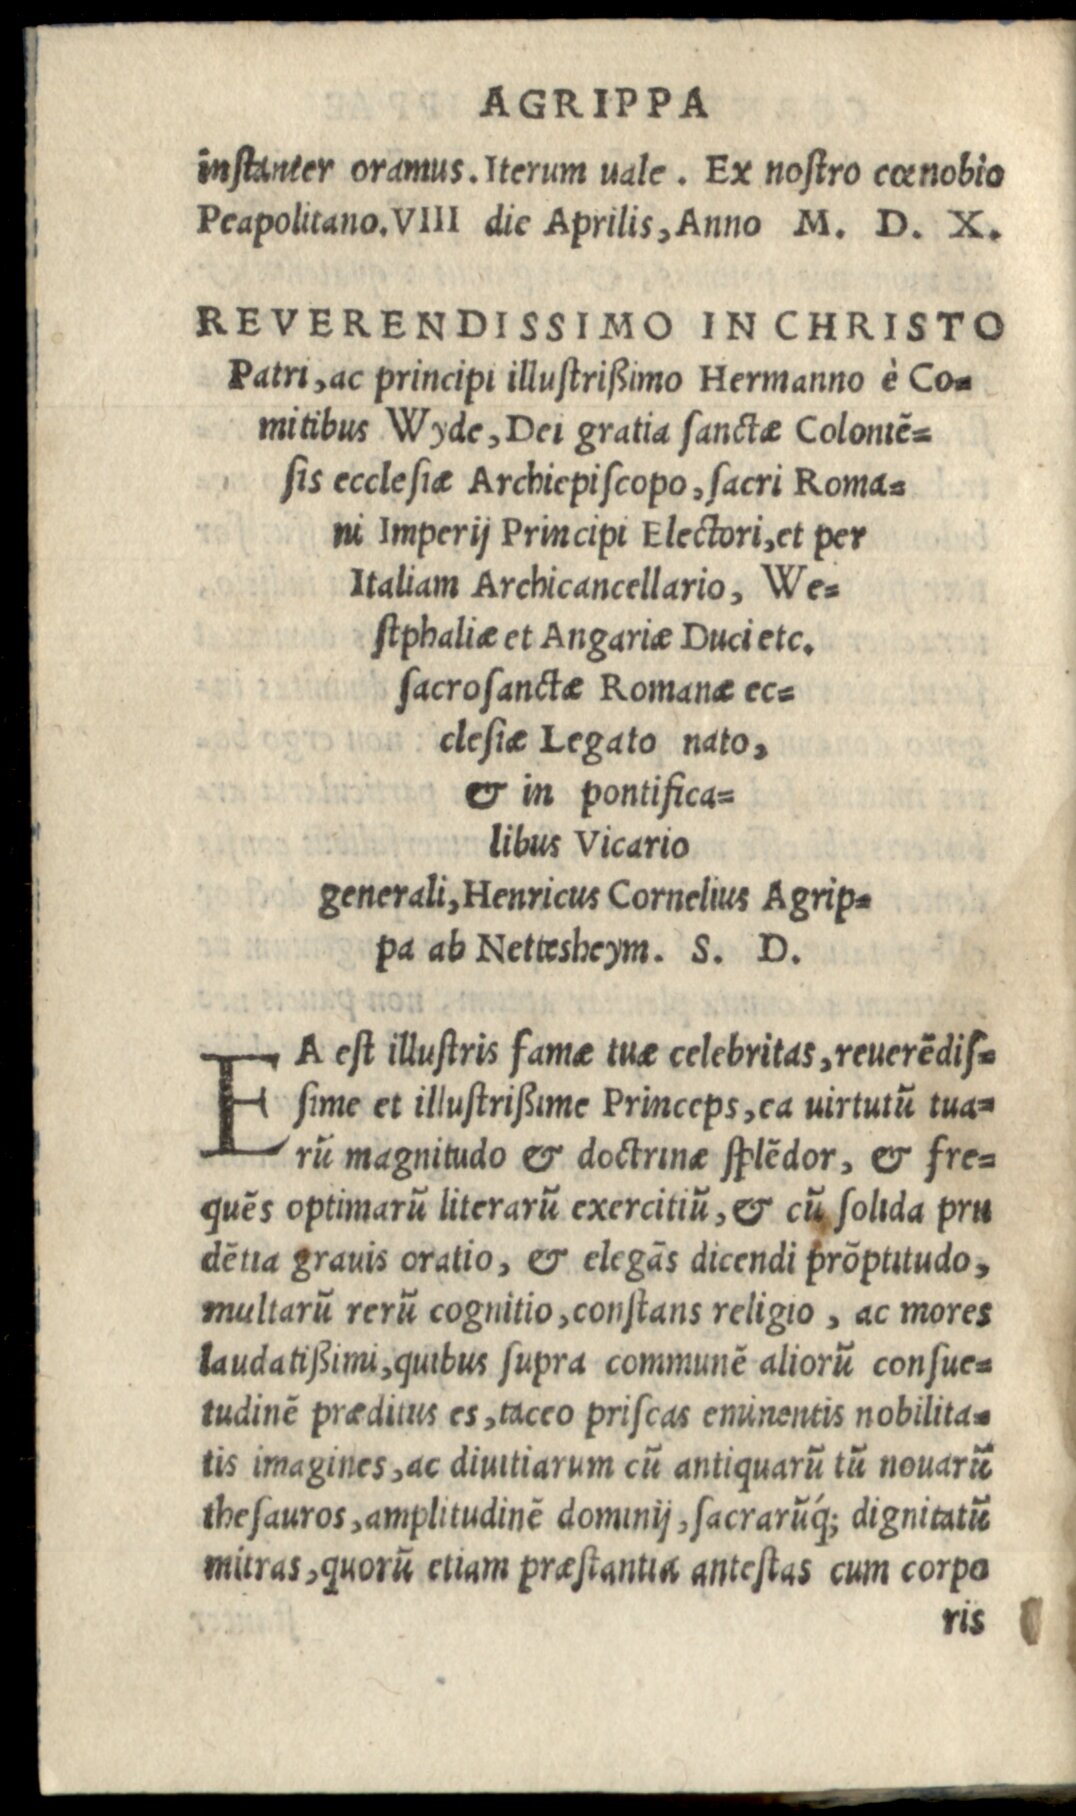 AGRIPPA
inſtanter oramus. Iterum uale. Ex noſtro cœnobio
Peapolitano. VIII die Aprilis, Anno M. D. X.
REVERENDISSIMO IN CHRISTO
Patri, ac principi illuſtrißimo Hermanno è Co=
mitibus Wyde, Dei gratia ſanctæ Coloniẽ=
ſis eccleſiæ Archiepiſcopo, ſacri Roma=
ni Imperij Principi Electori, et per
Italiam Archicancellario, We=
ſtphaliæ et Angariæ Duci etc.
ſacroſanctæ Romanæ ec=
cleſiæ Legato nato,
& in pontifica=
libus Vicario
generali, Henricus Cornelius Agrip=
pa ab Nettesheym. S. D.
EA eſt illuſtris famæ tuæ celebritas, reuerẽdiſ=
ſime et illuſtrißime Princeps, ea uirtutũ tua=
rũ magnitudo & doctrinæ ſplẽdor, & fre=
quẽs optimarũ literarũ exercitiũ, & cũ ſolida pru
dẽtia grauis oratio, & elegãs dicendi prõptitudo,
multarũ rerũ cognitio, conſtans religio, ac mores
laudatißimi, quibus ſupra communẽ aliorũ conſue=
tudinẽ præditus es, taceo priſcas eminentis nobilita=
tis imagines, ac diuitiarum cũ antiquarũ tũ nouarũ
theſauros, amplitudinẽ dominij, ſacrarũq́; dignitatũ
mitras, quorũ etiam præſtantia anteſtas cum corpo
ris